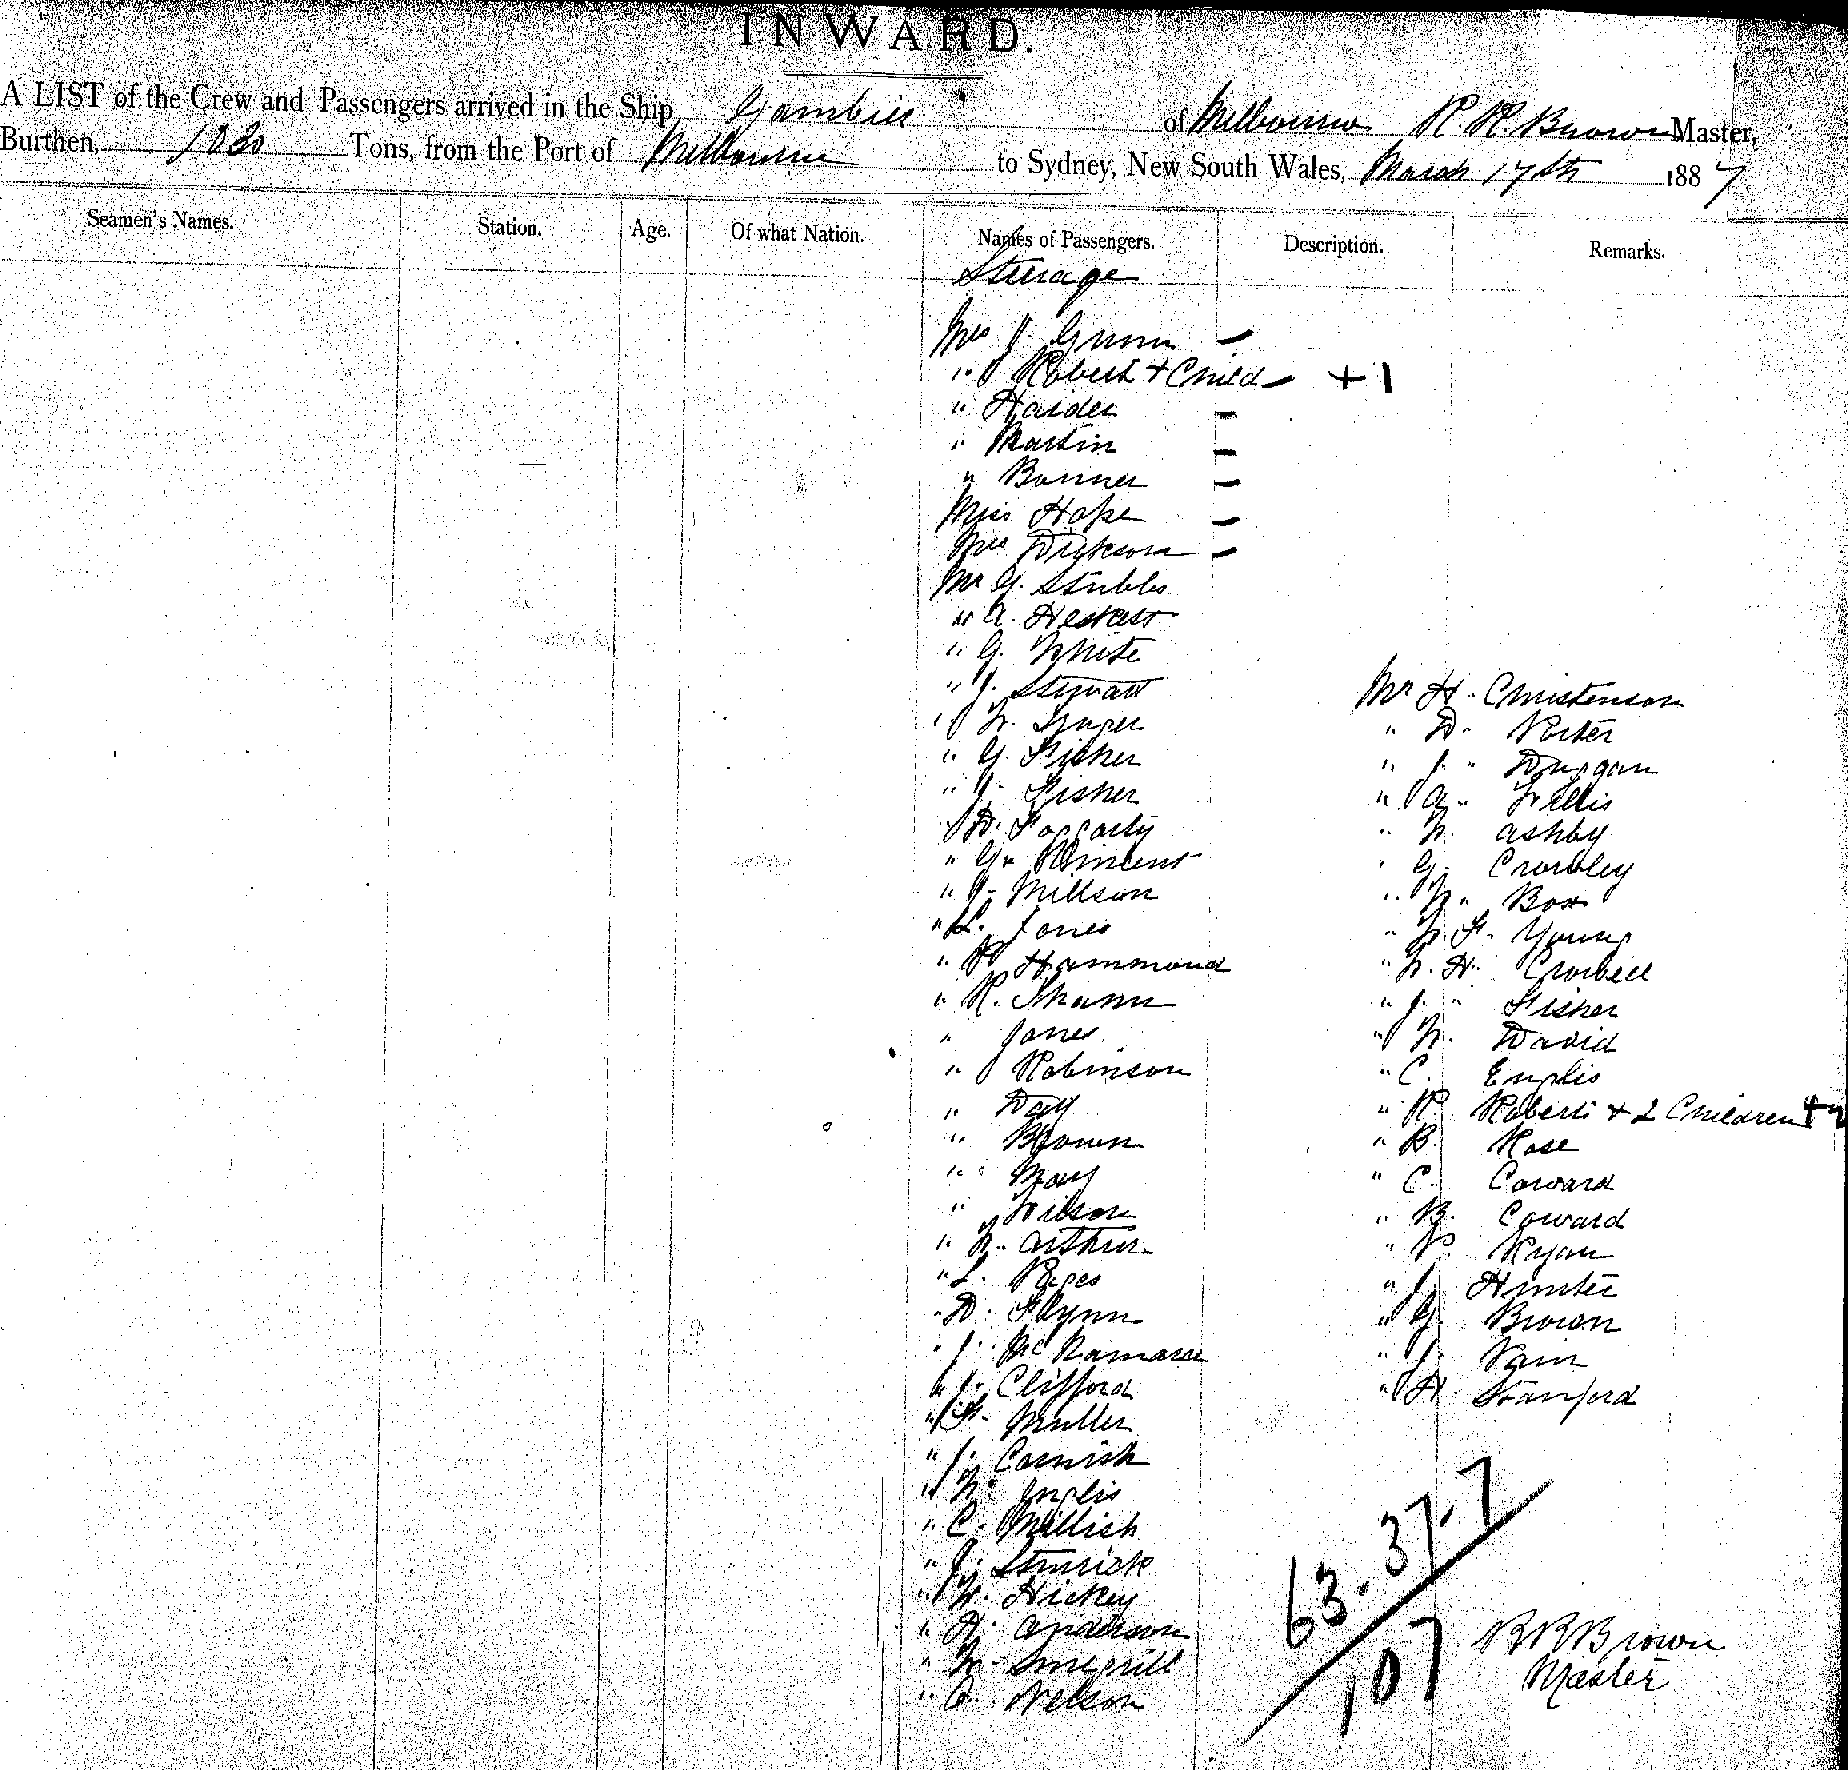 INWARD.
A LIST of the Crew and Passengers arrived in the Ship Gambier of Melbourne R. R. Brown Master,
Burthen, 1030 Tons, from the Port of Melbourne to Sydney, New South Wales, March 17th 1887
Seamen's Names. Station. Age. Of what Nation. Names of Passengers. Description. Remarks.
Steerage
Mrs J. Gunn
" Robert + Child + 1
" Harder
" Martin
" Bonner
Miss Hope
Mrs Dickson
Mr G. Stubbs
" A.
" G. White
" J. Stewart
" W.
" G. Fisher
" J. Fisher
" D. Foggarty
" G. Vincent
" J. Millson
" L. Jones
" Hammond
" R.
" Jones
" Robinson
" Day
" Brown
" May
" Wilson
" W. Arthur
" L.
" D. Flynn
" J.
" J. Clifford
" F. Muller
" J. Cornish
" W. Inglis
" C.
" J.
" W. Hickey
" H. Anderson
" W.
" C. Nelson
Mr H. Christenson
" D. Porter
" J. " Duggan
" A.
" W. Ashby
" G. Crowley
" W. Box
" W. F. Young
" W. H.
" J. " Fisher
" W. David
" C. Englis
" R. Roberts + 2 Children +2
" B. Rose
" C. Coward
" B. Coward
" P. Ryan
" J. Hunter
" G. Brown
" J. Pain
" H. Stanford
63. 37. 7
107
R R Brown
Master